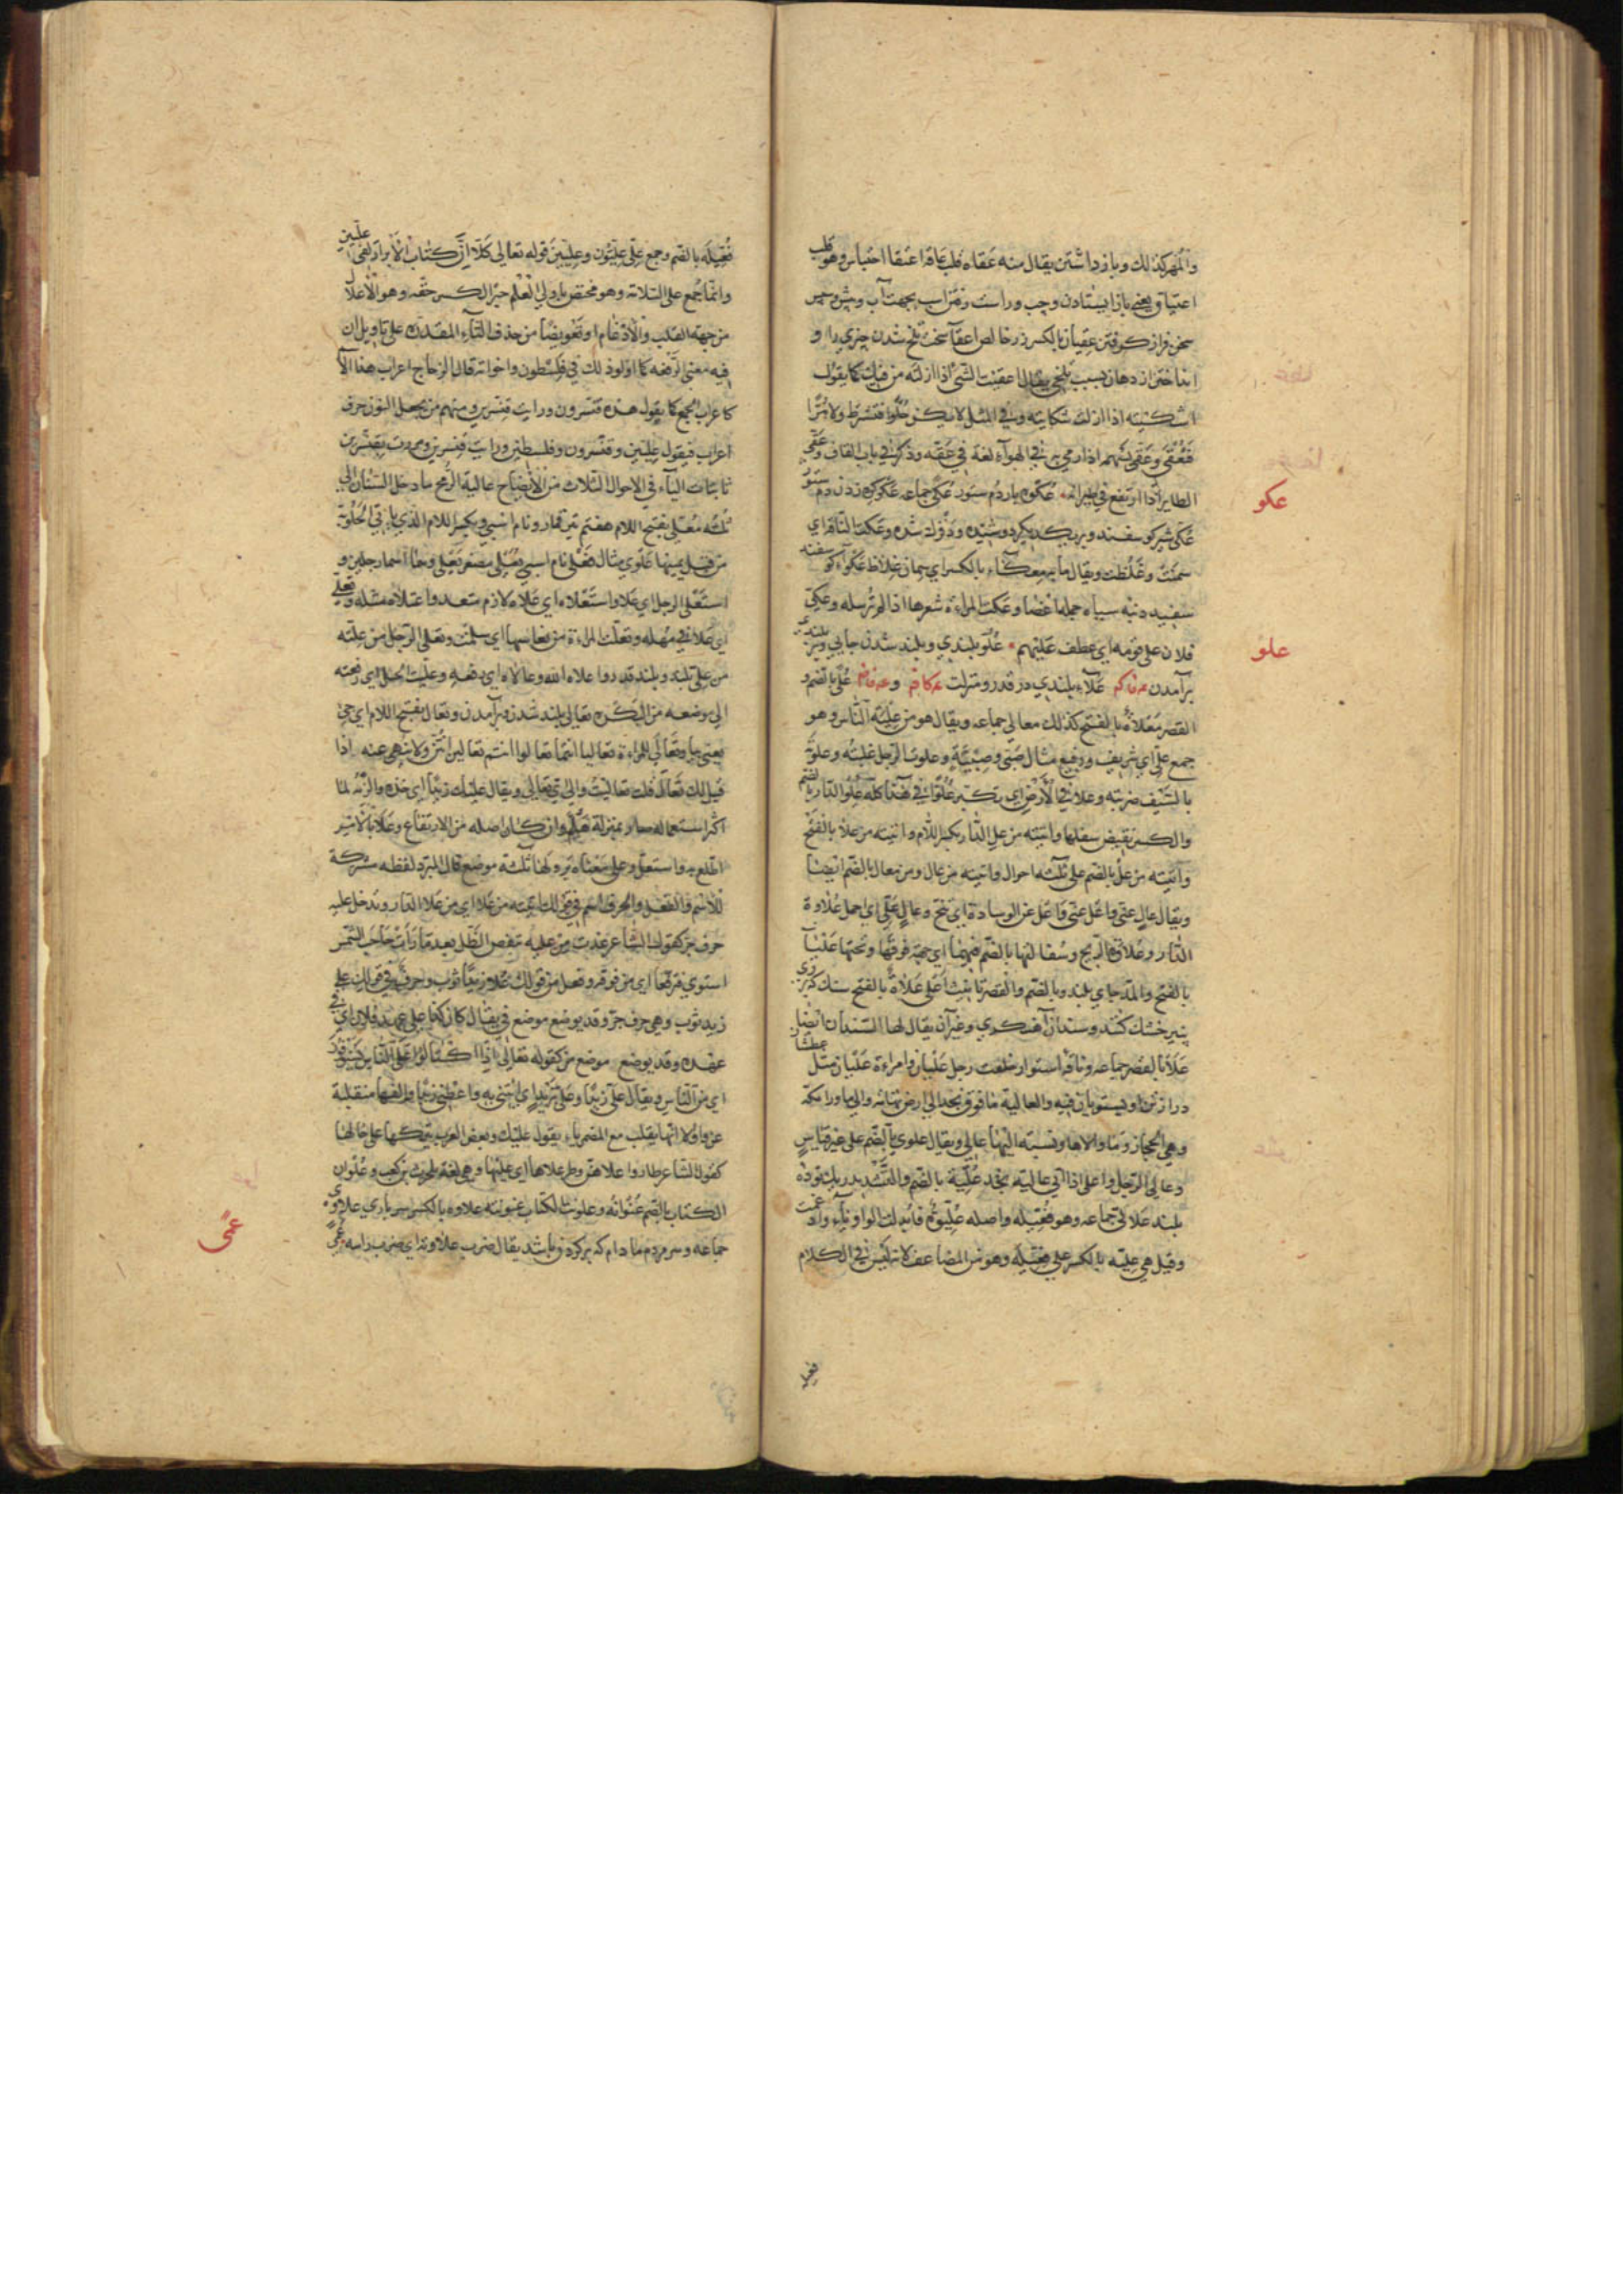 والمهر كذلك و باز داشتن يقال منه عقاه قلب عاقه اعتقا احتباس وهو قلب
اعتياق يعني باز ايستادن و چپ و راست رفتن اسب بجهت آب و پيش
سخن فراز گرفتن عقيان بالكسر زر خالص اعقا سخت تلخ شدن چيزي را و
انداختن از دهان بسبب تلخي يقال اعقيت الشئ اذا ازلته من فيك كما يقول
اشكيته اذا ازلت شكايته وفي المثل لا يكن حلوا فتسترط ولا مرا
فتعقي وعقى بسهمه اذا رمي به في الهوآء لغة في عقه وذكر في باب القاف وعقى
الطاير اذا ارتفع في طيرانه عكوه پاردم ستور عكي جماعه عكو گره زدن دم ستور
عكي شير گوسفند و بر يكديگر دوشيده و ذفزك شده وعكت الناقة اي
سمنت وغلظت ويقال ماية معكآء بالكسر اي سمان غلاظ عكوآء گوسفند
سفيد دنبه سياه جمله اعضا وعكت المراءة شعرها اذا لم ترسله وعكي
عكو
فلان على قومه اي عطف عليهم علو بلندي و بلند شدن جايي
علو
بر آمدن علآء بلندي در قدر و منزلت على بالضم و
القصر معلاة بالفتح كذلك معالي جماعه ويقال هو من علية الناس وهو
جمع علي اي شريف ورفيع مثال صبي وصبية وعلوت الرجل غلبته وعلوته
بالسيف ضربته وعلا في الارض اي تكبر علوا في هذا كله علو الدار بالضم
والكسر نقيض سفلها واتيته من عل الدار بكسر اللام واتيته من علا بالفتح
واتيته من عل بالضم على ثلثه احوال واتيته من عال ومن معال بالضم ايضا
ويقال عال عني واعل عني واعل عن الوسادة اي تنح وعال علي اي احمل علاوة
الدار وعلاوة الريح وسفالتها بالضم فيهما اي جهة فوقها وتحتها عليآ
بالفتح والمد جاي بلند وبالضم والقصر تانيث اعلى علاة بالفتح سنگ كه بر وي
پنير خشك كنند و سندان آهنگري و غير آن يقال لها السندان ايضا
علا بالقصر جماعه و ناقه استوار خلقت رجل عليان وامراءة عليان مثل عطشان
دراز تن او يستويان فيه والعالية ما فوق نجد الى ارض تهامه والى ما ورا مكة
وهي الحجاز وما والاها ونسبته اليها عالي ويقال علوي بالضم على غير قياس
وعالى الرجل واعلى اذا اتى عالية نجد علية بالضم والتشديد
بلند علالي جماعه وهو فعيلة واصله عليوة فابدلت الواو ياء وادغمت
وقيل هي علية بالكسر على فعيلة وهو من المضاعف لانه ليس في الكلام
فعيلة
فعيلة بالضم وجمع علي عليون وعليين قوله تعالى كلا ان كتاب الابرار لفي عليين
وانما جمع على الثلاثة وهو مختص باولي العلم
من جهة القلب والادغام او تعويضا من حذف التآء المقدره على تاويل ان
فيه معنى الرفعه كما اولوا ذلك في فلسطون واخواته قال الزجاج اعراب هذا الا
كاعراب الجمع كما يقول هذه قنسرون ورايت قنسرين ومنهم من يجعل النون حرف
اعراب فيقول عليين وقنسرون وفلسطين ورايت قنسرين ومررت بقنسرين
باثبات اليآء في الاحوال الثلاث من الايضاح عالية الرمح ما دخل السنان الى
ثلثه معلى بفتح اللام هفتم تير قمار و نام اسبي وبكسر اللام الذي ياتي الحلوبة
من قبل يمينها علوي مثال فعلى نام اسبي يعيلي مصغر يعلى وهما اسما رجلين و
استعلى الرجل اي علا واستعلاه اي علاه لازم متعد واعتلاه مثله وتعلى
اي علا في مهله وتعلت المراءة من نفاسها اي سلمت وتعلى الرجل من علته
من علي بلند و بلند قدر واعلاه الله وعالاه اي رفعه وعليت الحبل اي رفعته
الى موضعه من البكره تعالي بلند شدن و بر آمدن وتعال بفتح اللام اي جئ
يعني بيا وتعالي للمراءة تعاليا انتما تعالوا انتم تعالين انتن ولا ينهى عنه اذا
قيل لك تعال قلت تعاليت والى اي شئ اتعالى ويقال عليك زيدا اي خذه والزمه لما
اكثر استعماله صار بمنزلة هلم وان كان اصله من الارتفاع وعلا بالامر
اطلع به واستعلى وعلى معناه بر ولها ثلثة موضع قال المبرد لفظه مشركة
للاسم والفعل والحرف اسم في قولك اتيته من علا اي من علا الدار وتدخل عليه
حرف جر كقول الشاعر غدت من عليه تنفض الطل بعد ما رات حاجب الشمس
استوى فترفعا اي من فوقه وفعل من قولك علا زيدا ثوب وحرف في قولك على
زيد ثوب وهي حرف جر وقد يوضع موضع في يقال كان كذا على عهد فلان اي في
عهده وقد يوضع موضع من كقوله تعالى اذا اكتالوا على الناس يستوفون
اي من الناس ويقال علي زيدا وعلي بزيد اي ائتني به واعطني زيدا والفها منقلبة
عن واو الا انها يقلب مع المضمر ياء يقول عليك وبعض العرب يتركها على حالها
كقول الشاعر طاروا علاهن وطر علاها اي عليها وهي لغة بلحرث بن كعب وعلوان
الكتاب بالضم عنوانه وعلونت الكتاب عنونته علاوه بالكسر سر باري علاوى
جماعه و سر مردم مادام كه بر گردن باشد يقال ضرب علاوته اي ضرب راسه عمى
عمى